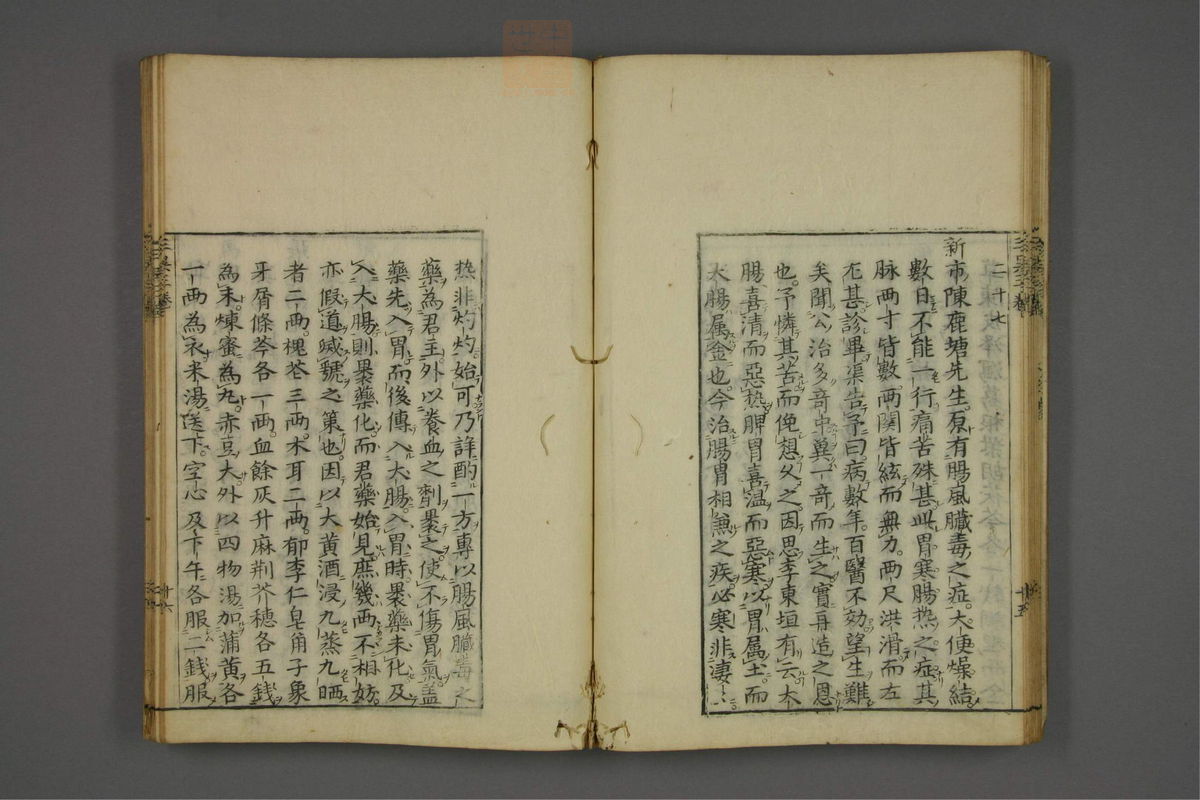 二十七
新市陳鹿塘先生原有腸風臟毒之症大便燥結
數日不能一行痛苦殊甚此胃寒腸热之症其
脉兩寸皆數兩関皆絃而無力兩尺洪滑而左
尤甚診畢渠告予曰病數年百醫不効望生難
矣聞公治多奇中冀一奇而生之實再造之恩
也予憐其苦而俛想久之因思李東垣有云大
腸喜清而惡热脾胃喜温而惡寒以胃属土而
大腸属金也今治腸胃相兼之疾必寒非凄〻
热非灼灼始可乃詳酌一方專以腸風臟毒之
藥為君主外以養血之劑裹之使不傷胃氣盖
藥先入胃而後傳入大腸入胃時裹藥未化及
入大腸則裹藥化而君藥始見庶幾兩不相妨
亦假道㓕虢之策也因以大黄酒浸九蒸九晒
者二兩槐花三兩木耳二兩郁李仁皂角子象
牙屑條芩各一兩血餘灰升麻荆芥穗各五錢
為末煉蜜為丸赤豆大外以四物湯加蒲黄各
一兩為衣米湯送下空心及下午各服二錢服